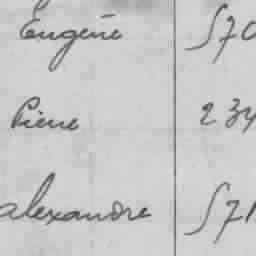 Eugène 570
Pierre 234
Alexandre 571